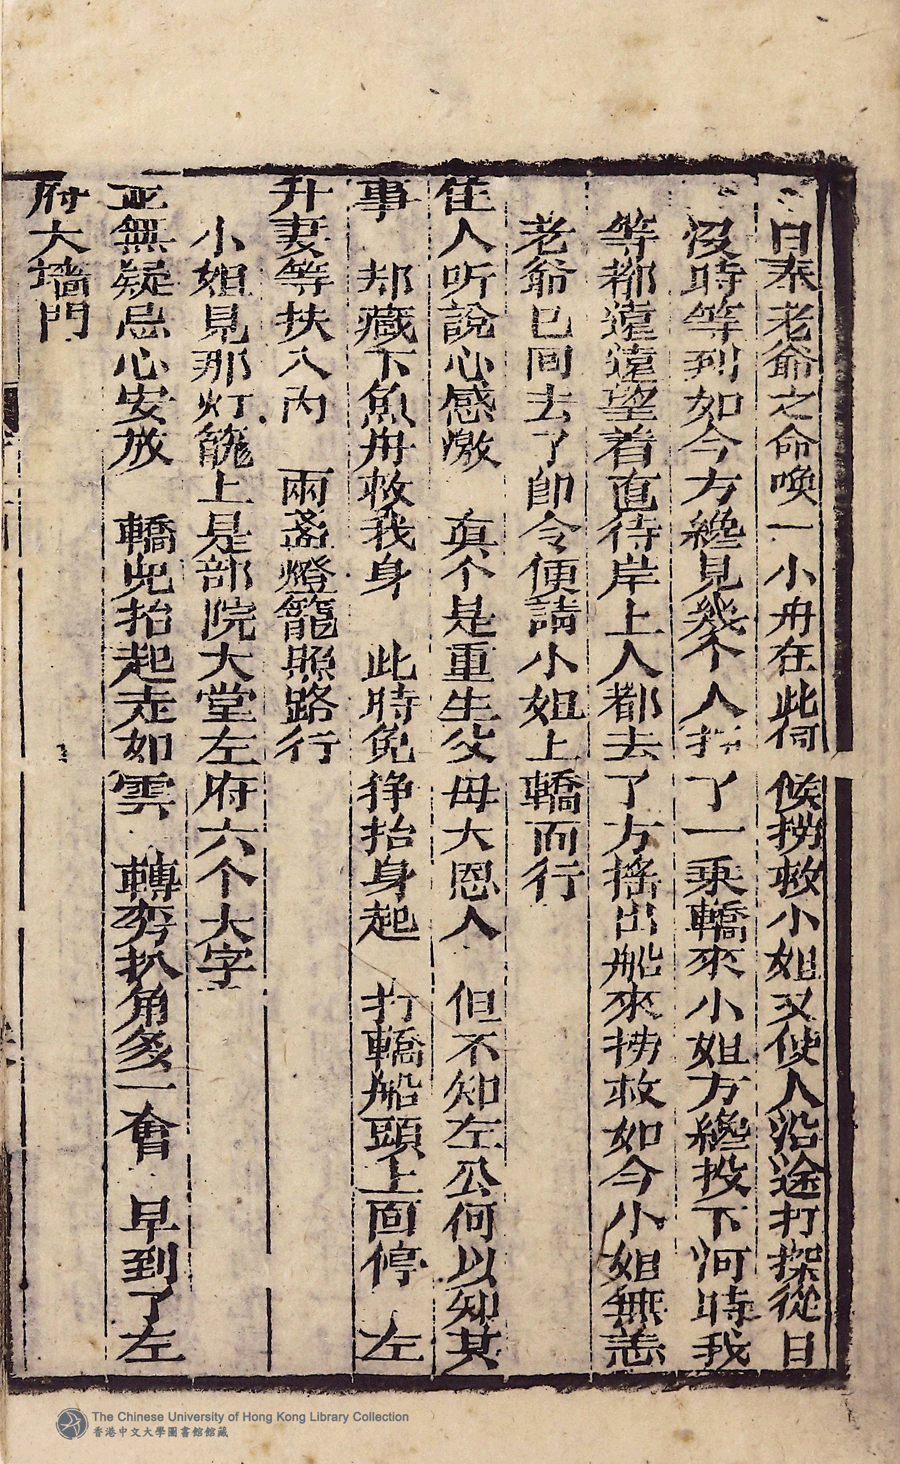 日奉老爺之命喚一小舟在此伺候撈救小姐又使人沿途打探從日
沒時等到如今方纔見幾个人抬了一乘轎來小姐方纔投下河時我
等都遠遠望着直待岸上人都去了方搖出船來撈救如今小姐無恙
老爺已回去了卽令便請小姐上轎而行
隹人听說心感激　真个是重生父毋大恩人　但不知左公何以知其
事　却藏下魚舟救我身　此時免掙抬身起　打轎船頭上面停　左
升妻等扶入內　兩盞燈籠照路行
小姐見那灯籠上是部院大堂左府六个大字
並無疑忌心安放　轎兜抬起走如雲　轉弯扒角多一會　早到了左
府大墻門
The Chinese University of Hong Kong Library Collection
香港中文大學圖書館館藏